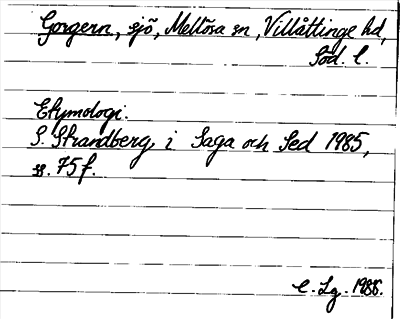 Gorgern, sjö, Mellösa sn, Villåttinge hd,
Söd. l.
Etymologi.
S. Strandberg i Saga och Sed 1985,
ss. 75 f.
C. Lg. 1988.